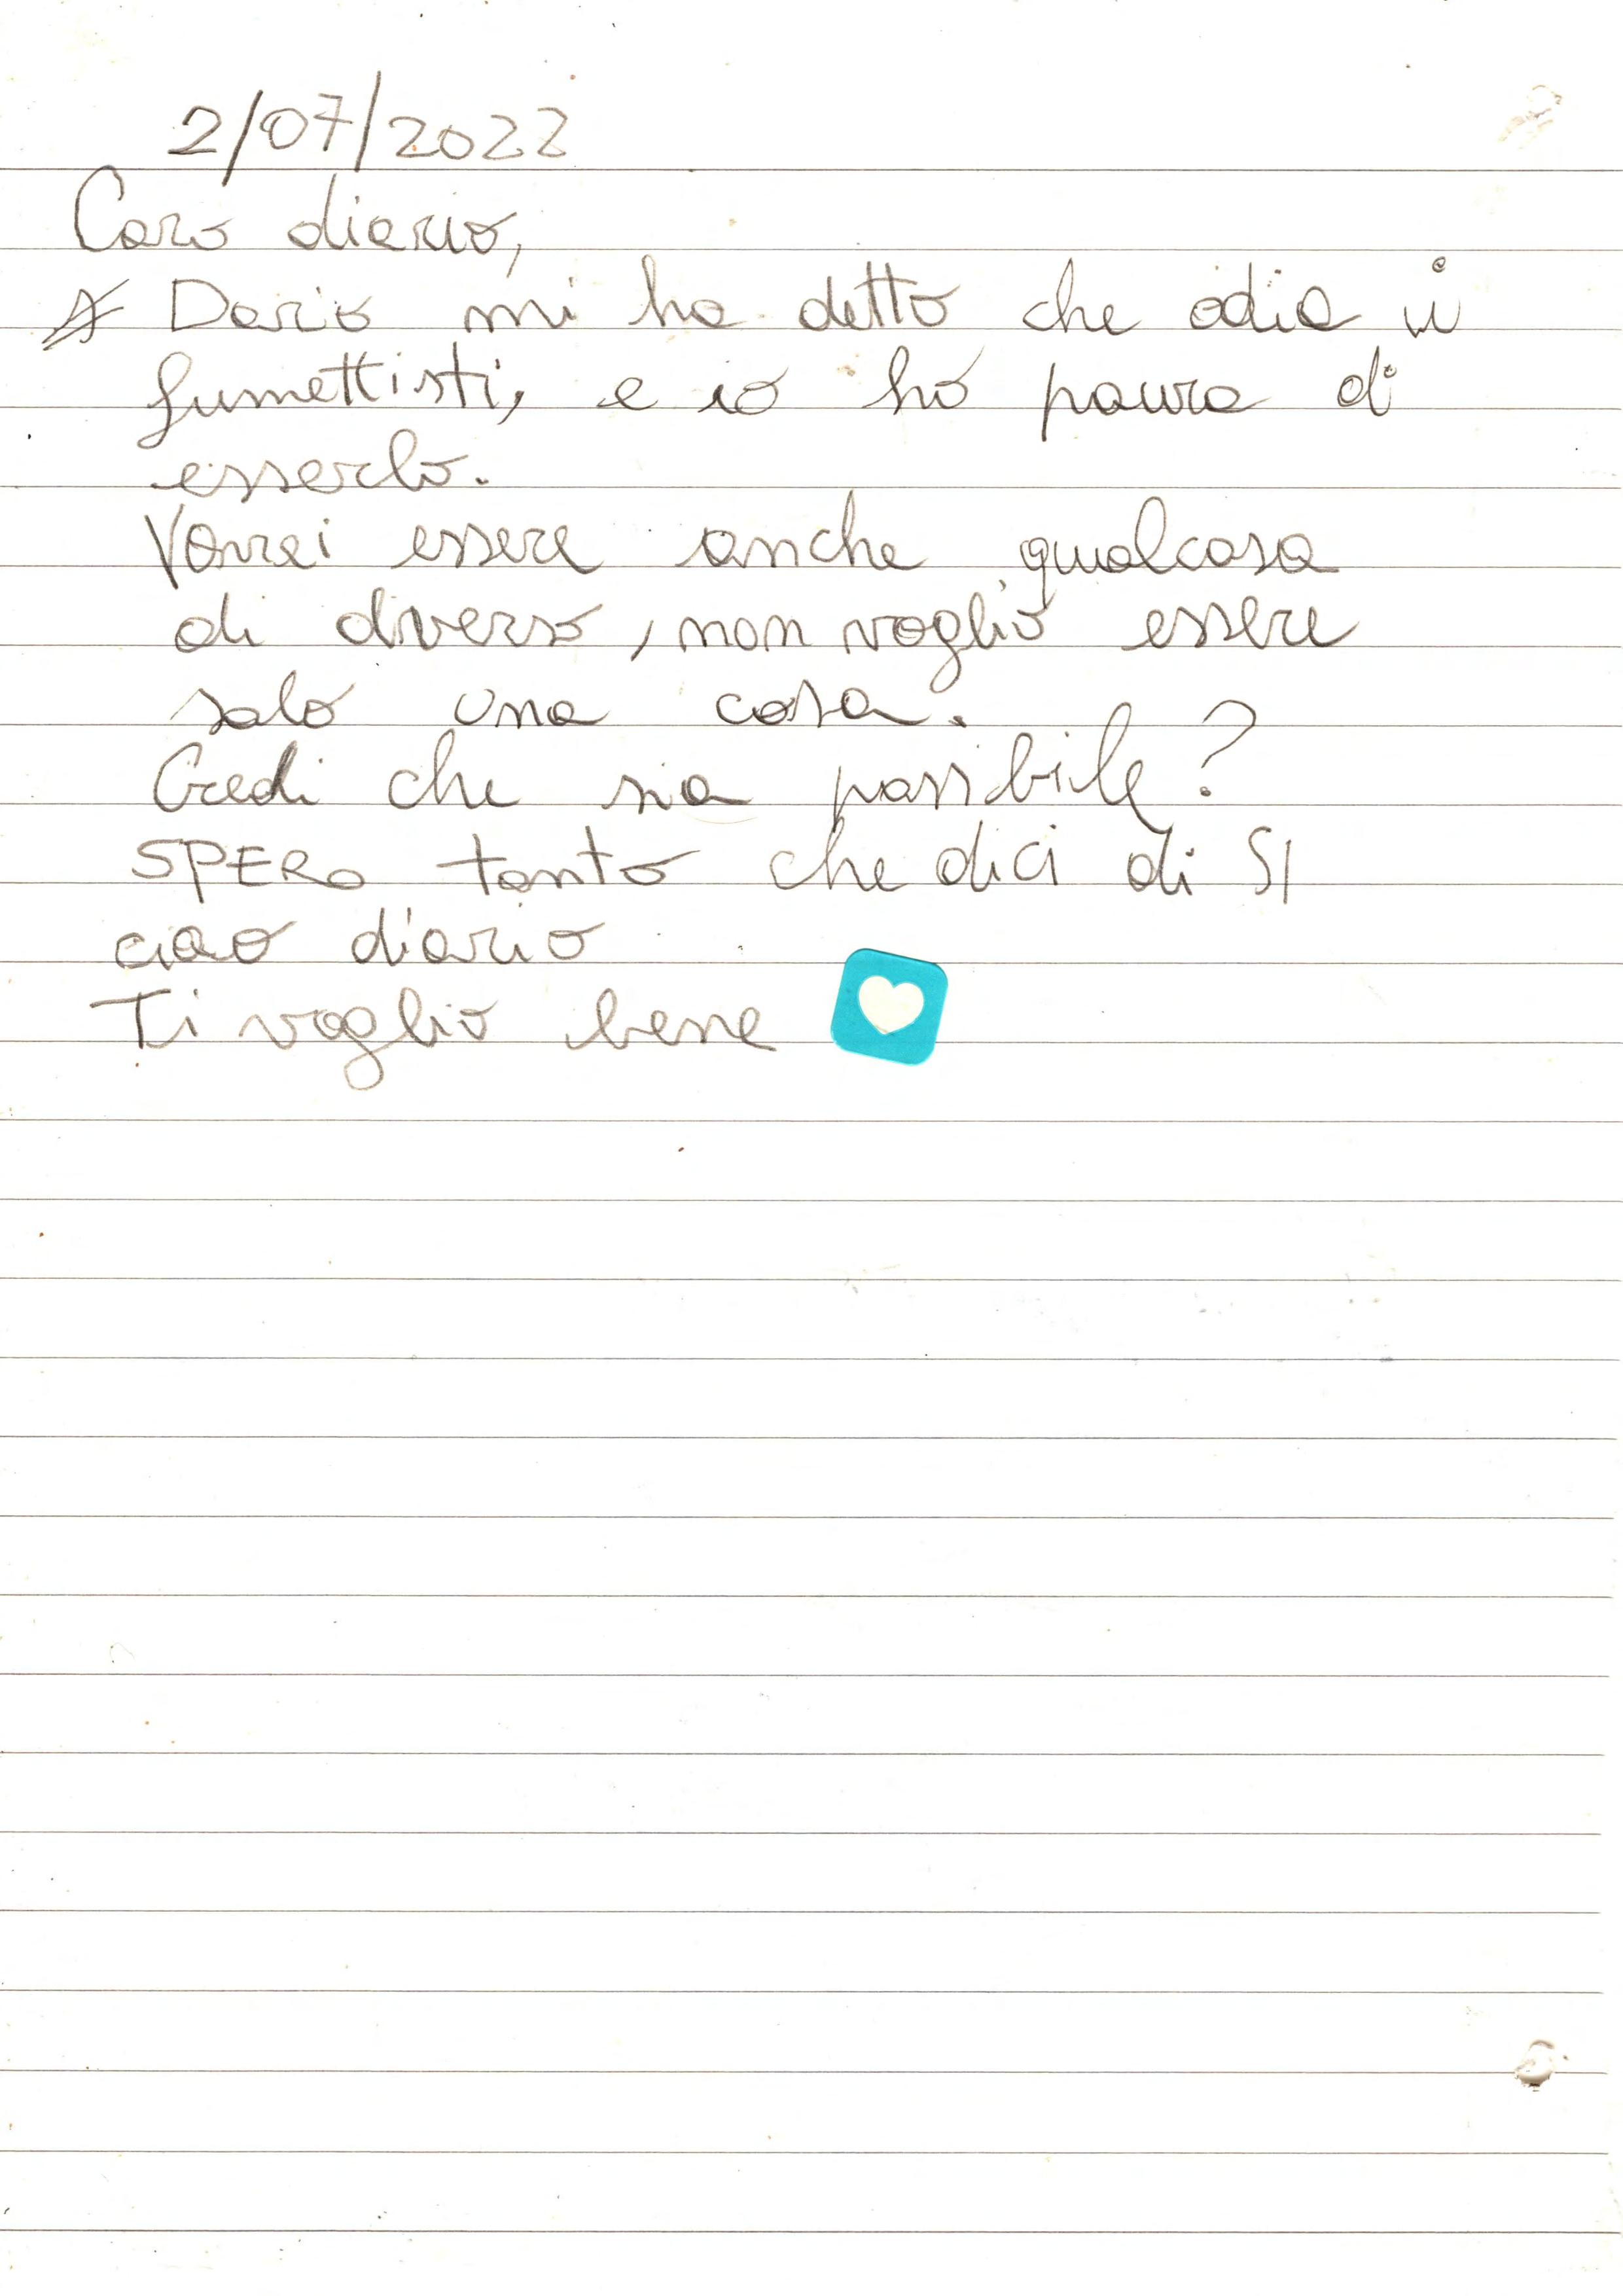 2/07/2022
Caro diario,
Dario mi ha detto che odia i
fumettisti, e io ho paura di
esserlo.
Vorrei essere anche qualcosa
di diverso, non voglio essere
solo una cosa.
Credi che sia possibile?
SPERO tanto che dici di SI
ciao diario
Ti voglio bene